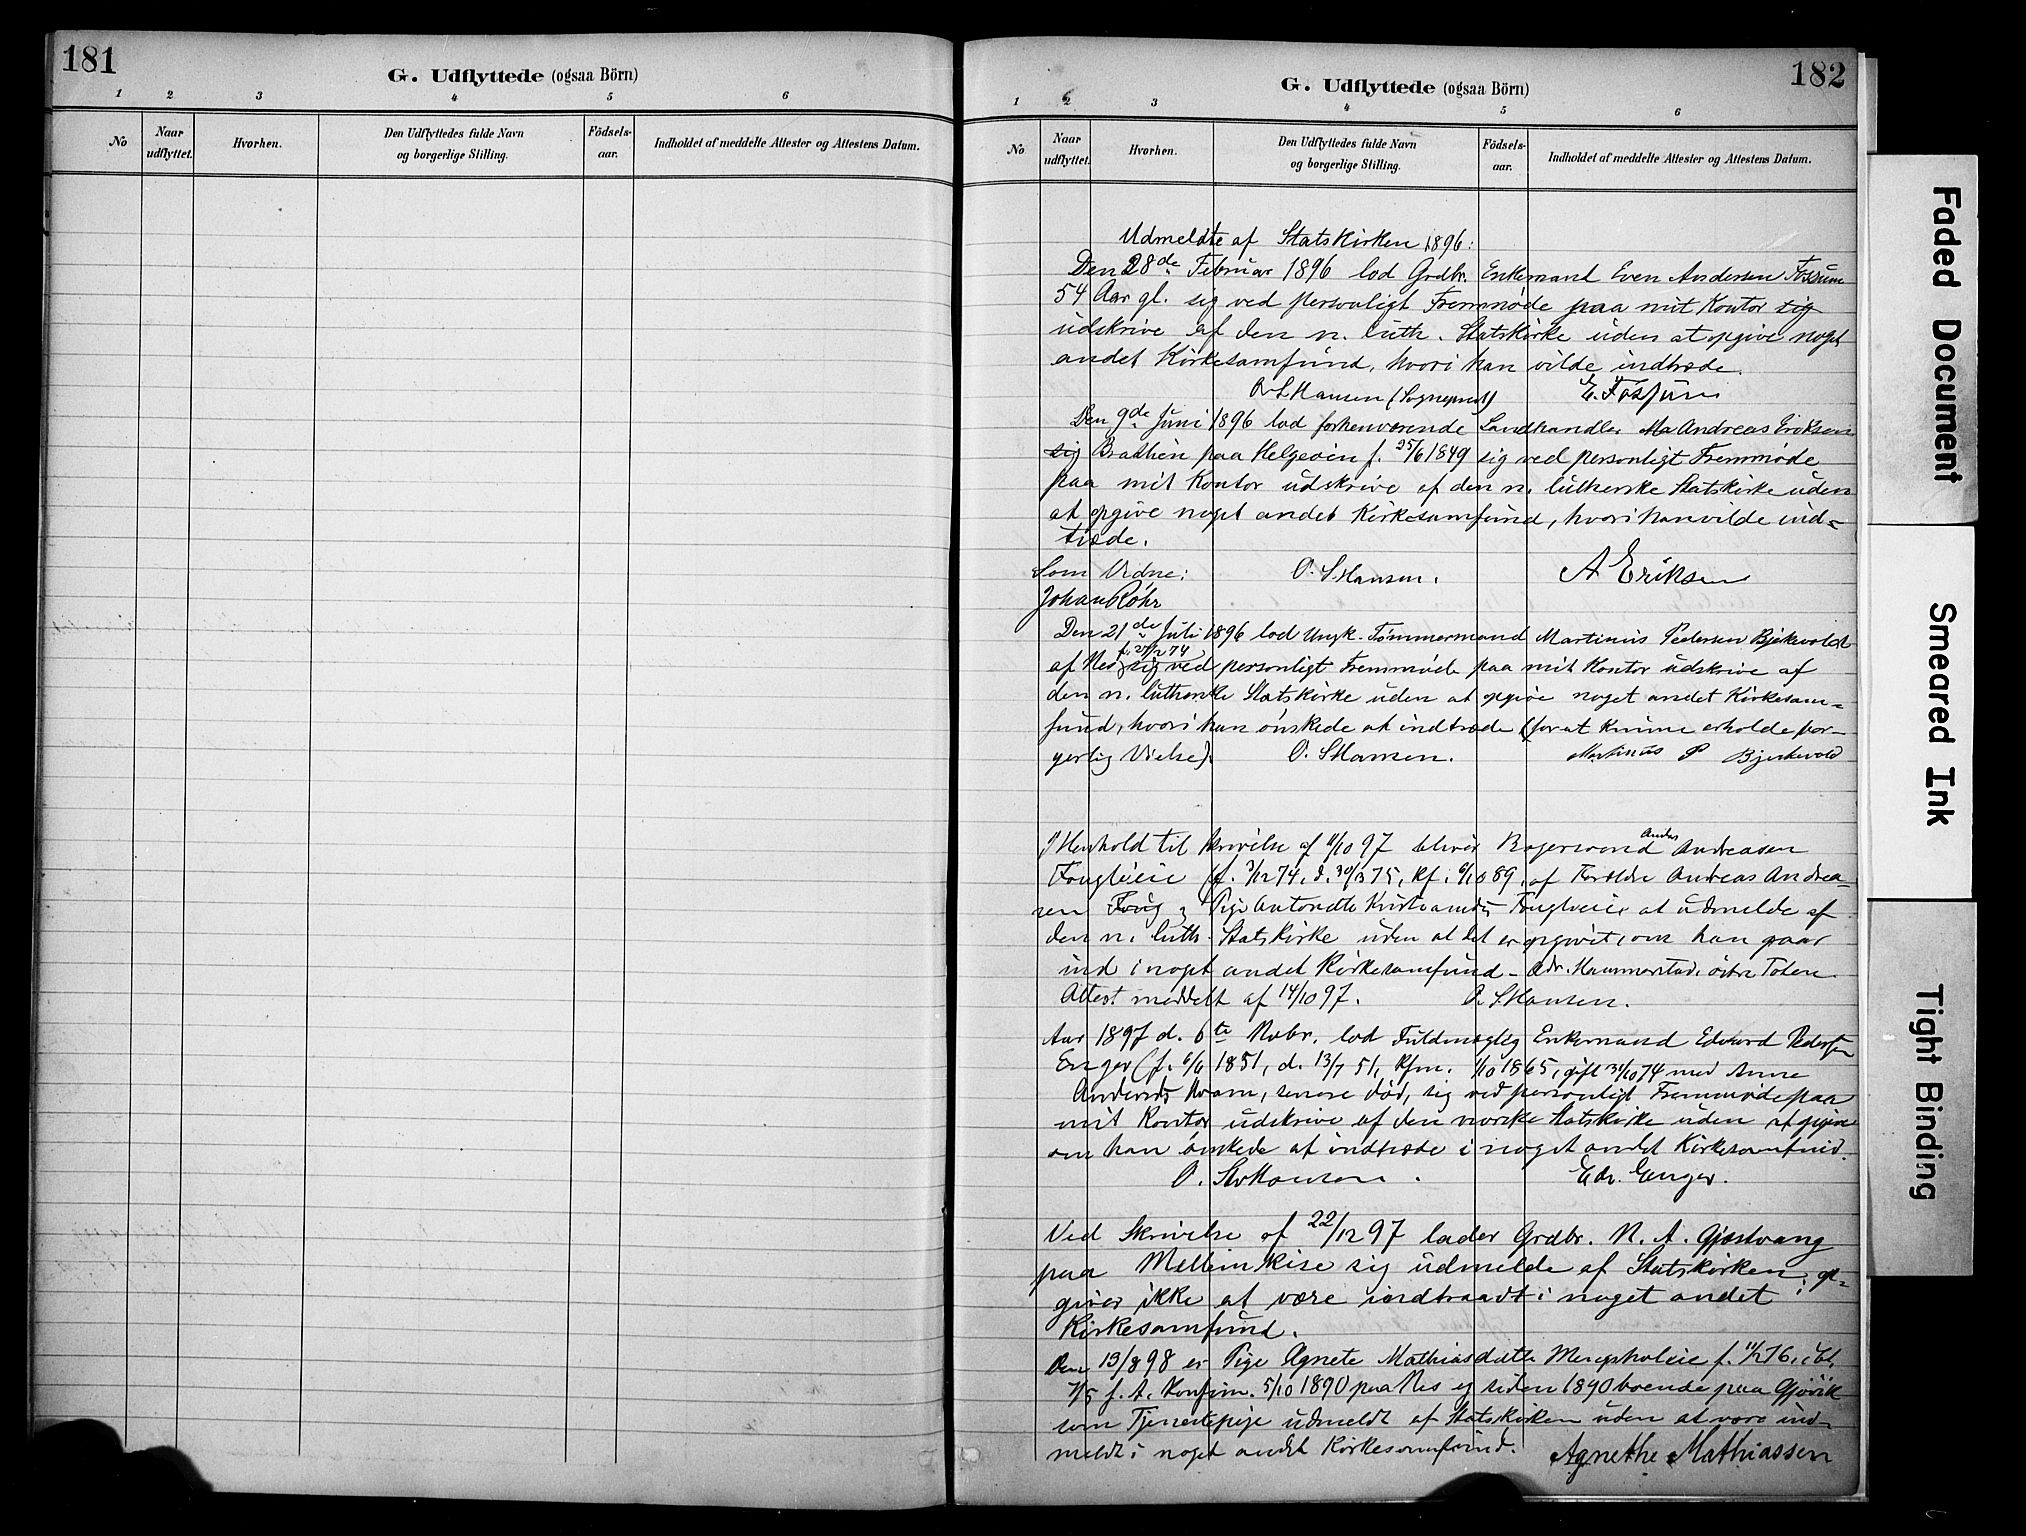 181
G. Udflyttede (ogsaa Börn)
1 2 3 4 5 6
No
Naar udflyttet.
Hvorhen.
Den Udflyttedes fulde Navn og borgerlige Stilling.
Födsels-aar.
Indholdet af meddelte Attester og Attestens Datum.
182
G. Udflyttede (ogsaa Börn)
1 2 3 4 5 6
No
Naar udflyttet.
Hvorhen.
Den Udflyttedes fulde Navn og borgerlige Stilling.
Födsels-aar.
Indholdet af meddelte Attester og Attestens Datum.
Udmeldte af Statskirken 1896:
Den 28de Februar 1896 lod Grdbr. Enkemand Even Andersen Fossum
54 Aar gl. sig ved personligt Fremmøde paa mit Kontor sig
udskrive af den n. luth. Statskirke uden at opgive noget
andet Kirkesamfund, hvori han vilde indtræde.
O. S. Hansen (Sogneprest) E. Fossum
Den 9de Juni 1896 lod forhenværende Landhandler Andreas Eriksen
sig Brathen paa Helgeøen f. 25/6 1849 sig ved personligt Fremmøde
paa mit Kontor udskrive af den n. lutherske Statskirke uden
at opgive noget andet Kirkesamfund, hvori han vilde ind-
træde.
Som Vidne: O. S. Hansen. A Eriksen
Johan Röhr
Den 21de Juli 1896 lod Ungk. Tømmermand Martinus Pedersen Bjekvold
af Nes sig ved personligt Fremmøde paa mit Kontor udskrive af
den n. lutherske Statskirke uden at opgive noget andet Kirkesam-
fund, hvori han ønskede at indtræde (for at kunne erholde bor-
gerlig Vielse). O. S. Hansen. Martinus P Bjerkevold
I Henhold til Skrivelse af 11/10 97 bliver Bagersvend Andreasen
(f. 7/12 74, af Forældre Andreas Andrea-
sen Pige at udmelde af
den n. luth. Statskirke uden at det er opgivet, om han gaar
ind i noget andet Kirkesamfund - Adr. Hammerstad, østre Toten
Attest meddelt af 14/10 97. O. S. Hansen.
Aar 1897 d. 6te Novbr. lod Fuldmægtig Enkemand Edvard Pedersen
Enger (f. 6/6 1851, d. 13/7 51, Kfm. 1/10 1865, gift 31/10 74 med Anne
Andersdt. Kvam, senere død, sig ved personligt Fremmøde paa
mit Kontor udskrive af den norske Statskirke uden at opgive
om han ønskede at indtræde i noget andet Kirkesamfund.
O. S. Hansen. Edv. Enger.
Ved Skrivelse af 22/12 97 lader Grdbr. N. A. Gjøstvang
paa Mellem Kise sig udmelde af Statskirken; op-
giver ikke at være indtraadt i noget andet
Kirkesamfund.
Den 13/8 98 er Pige Agnete Mathiasdatter f. 11/2 76,
7/5 f. A. Konfirm. 5/10 1890 paa Nes og siden 1890 boende paa Gjøvik
som Tjenestepige udmeldt af Statskirken uden at være ind-
meldt i noget andet Kirkesamfund. Agnethe Mathiassen
Faded Document
Smeared Ink
Tight Binding